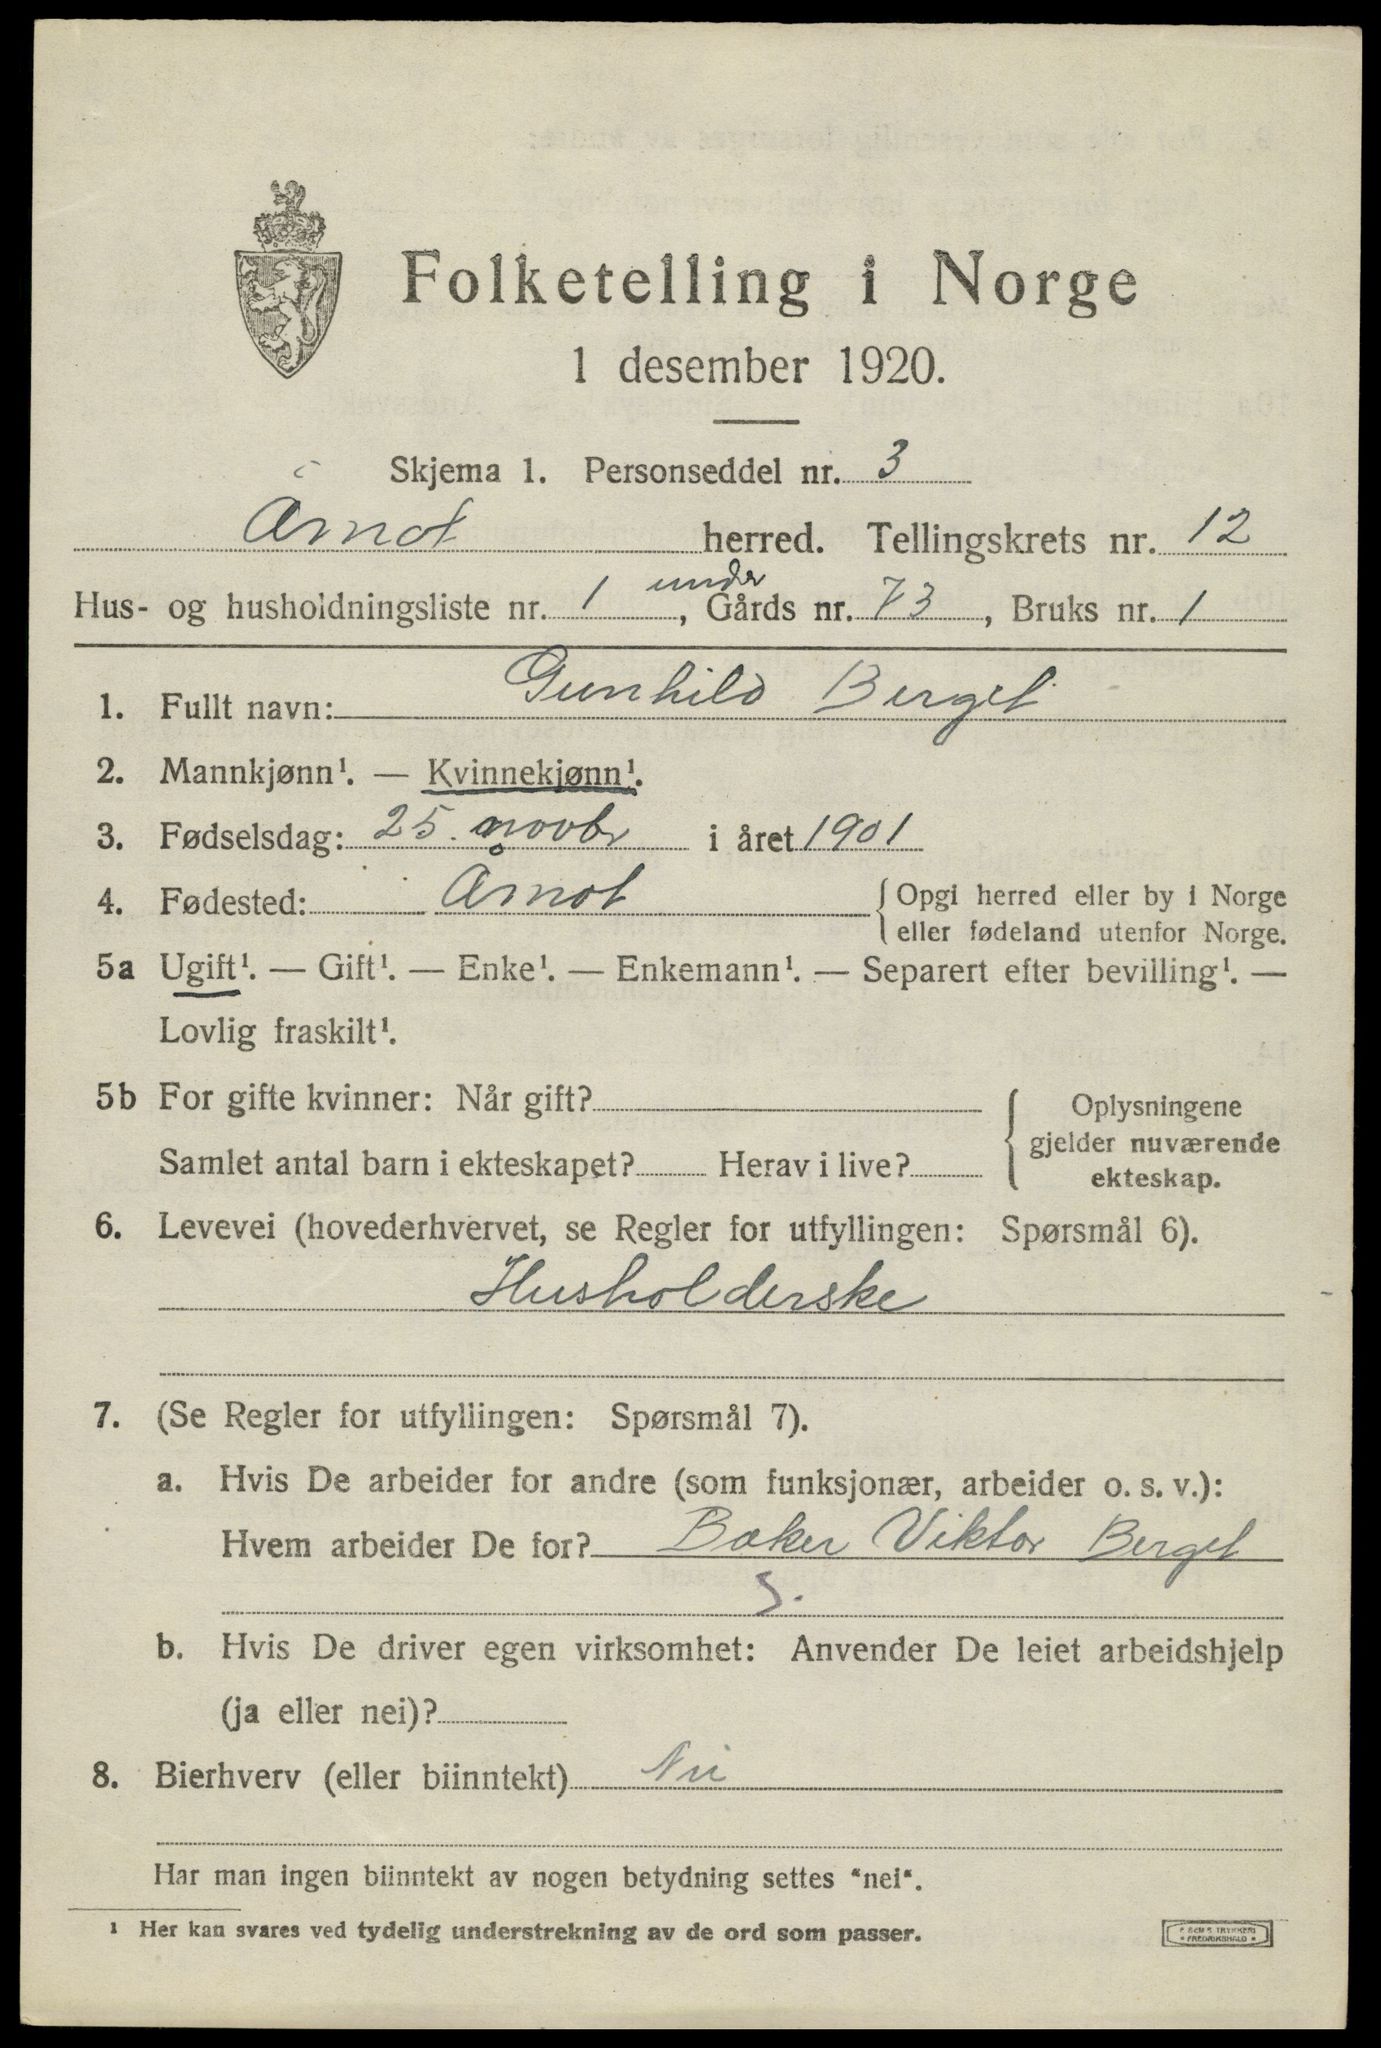 Folketelling i Norge
1 desember 1920.
Skjema 1. Personseddel nr. 3
Åmot herred. Tellingskrets nr. 12
under
Hus- og husholdningsliste nr. 1, Gårds nr. 73, Bruks nr. 1
1. Fullt navn: Gunhild Berget
2. Mannkjønn¹. — Kvinnekjønn¹.
3. Fødselsdag: 25. novbr i året 1901
4. Fødested: Åmot { Opgi herred eller by i Norge
eller fødeland utenfor Norge.
5a Ugift¹. — Gift¹. — Enke¹. — Enkemann¹. — Separert efter bevilling¹. —
Lovlig fraskilt¹.
5b For gifte kvinner: Når gift? { Oplysningene
gjelder nuværende
Samlet antal barn i ekteskapet? Herav i live? ekteskap.
6. Levevei (hovederhvervet, se Regler for utfyllingen: Spørsmål 6).
Husholderske
7. (Se Regler for utfyllingen: Spørsmål 7).
a. Hvis De arbeider for andre (som funksjonær, arbeider o. s. v.):
Hvem arbeider De for? Baker Viktor Berget
S.
b. Hvis De driver egen virksomhet: Anvender De leiet arbeidshjelp
(ja eller nei)?
8. Bierhverv (eller biinntekt) Nei
Har man ingen biinntekt av nogen betydning settes "nei".
¹ Her kan svares ved tydelig understrekning av de ord som passer.
TRYKKERI
FREDRIKSHALD